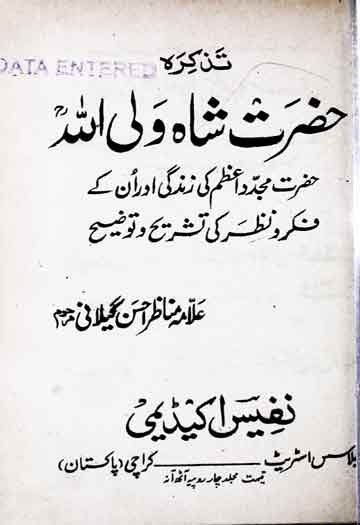 DATA ENTERED
تذکرہ
حضرت شاہ ولی اللہؒ
حضرت مجدد اعظم کی زندگی اور اُن کے
فکر و نظر کی تشریح و توضیح
علامہ مناظر احسن گیلانی مرحوم
نفیس اکیڈیمی
بلاسس اسٹریٹ ــــــــــ کراچی (پاکستان)
قیمت مجلد چار روپیہ آٹھ آنہ